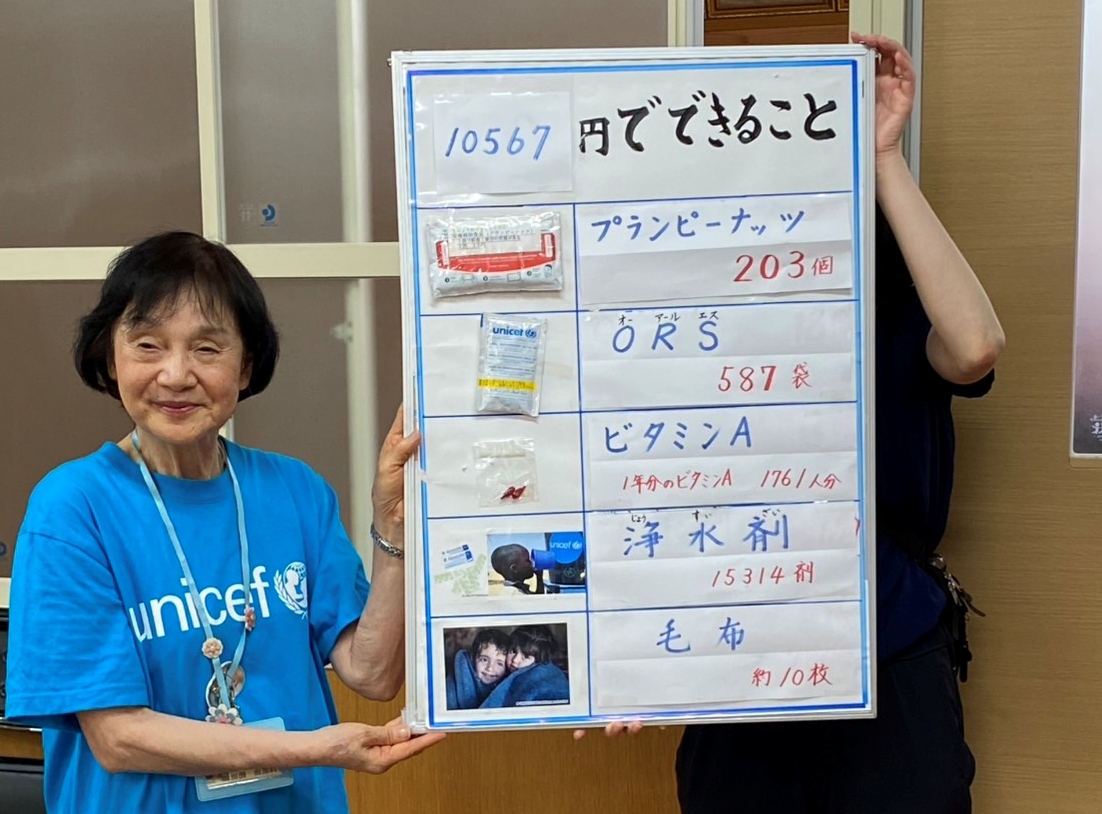 10567 円でできること
プランピーナッツ
203個
オー アール エス
ORS
587 袋
unicef
ビタミンA
1年分のビタミンA 1761人分
じょう すい ざい
浄水剤
unicef
15314 剤
毛布
約10枚
unicef